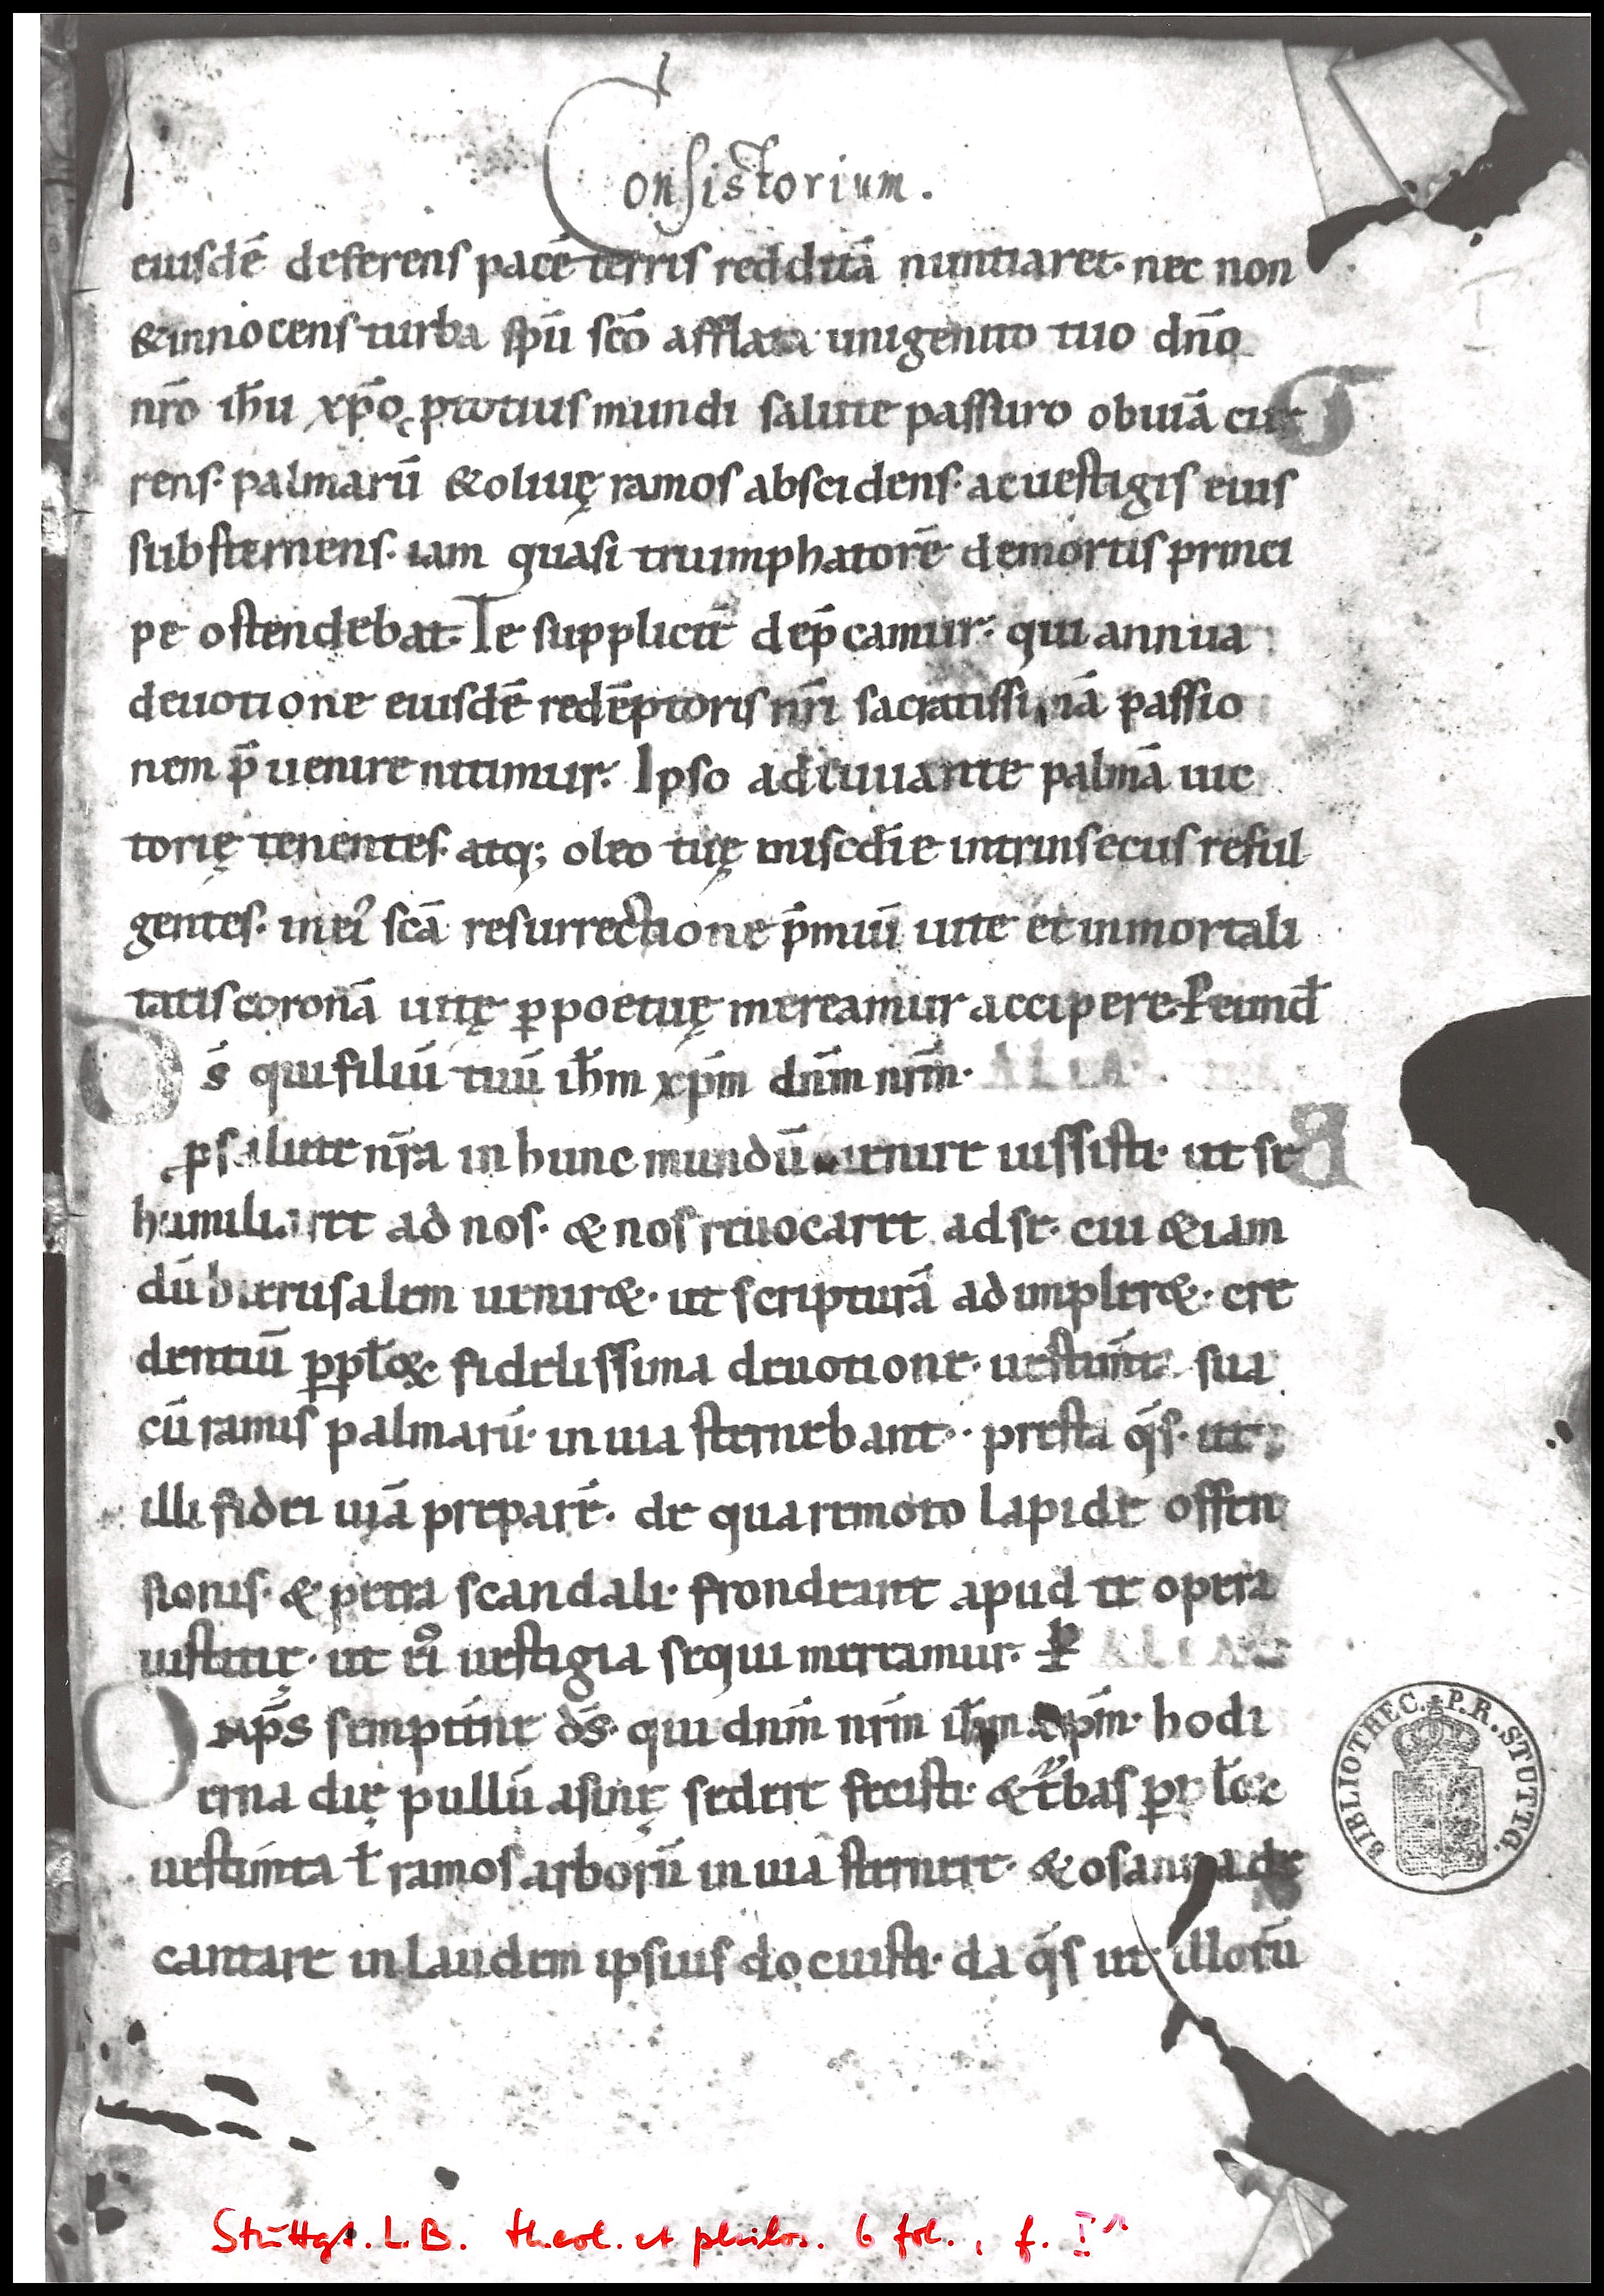 Consistorium.
eiusdē deferens pacē terris redditā nuntiaret· nec non
& innocens turba sp̄u sc̄o afflata unigenito tuo dn̄o
nr̄o ih̄u xp̄o, p totius mundi salute passuro obuiā cur
rens· palmarū & oliuę ramos abscidens· ac uestigis eius
substernens· iam quasi triumphatorē de mortis princi
pe ostendebat· Te supplicit̄ dep̄camur· qui annua
deuotione eiusdē redēptoris nr̄i sacratissimā passio
nem p̄uenire nitimur· Ipso adiuuante palmā uic
torię tenentes· atq; oleo tuę misc̄die intrinsecus reful
gentes· in ei᾽ sc̄a resurrectione p̄miū uite et inmortali
tatis coronā uitę ꝑpoetuę mereamur accipere· P eund̄
D s̄ qui filiū tuū ih̄m xp̄m dn̄m nr̄m· ALIA·
ꝓ salute nr̄a in hunc mundū uenire iussisti· ut se
humiliaret ad nos· & nos reuocaret ad se· cui & iam
dū hierusalem uenir&· ut scripturā adimpler&· cre
dentiū ꝑpl̄o& fidelissima deuotione· uestim̄ta sua
cū ramis palmarū· in uia sternebant· presta q̄s· ut
illi fidei uiā preparē· de qua remoto lapide offen
sionis· & petra scandali· frondeant apud te opera
iustitię· ut ei᾽ uestigia sequi mereamur· P ALIA
O mp̄s sempit̄ne d̄s· qui dn̄m nr̄m ih̄m xp̄m· hodi
erna die pullū asinę sedere fecisti· & t᾽bas
uestim̄ta ł ramos arborū in uia sternere· & osanna de
cantare in laudem ipsius docuisti· da q̄s ut illorū
BIBLIOTHEC. P. R. STUTTG.
Stuttgt. L.B. theol. et philos. 6 fol., f. Iʳ